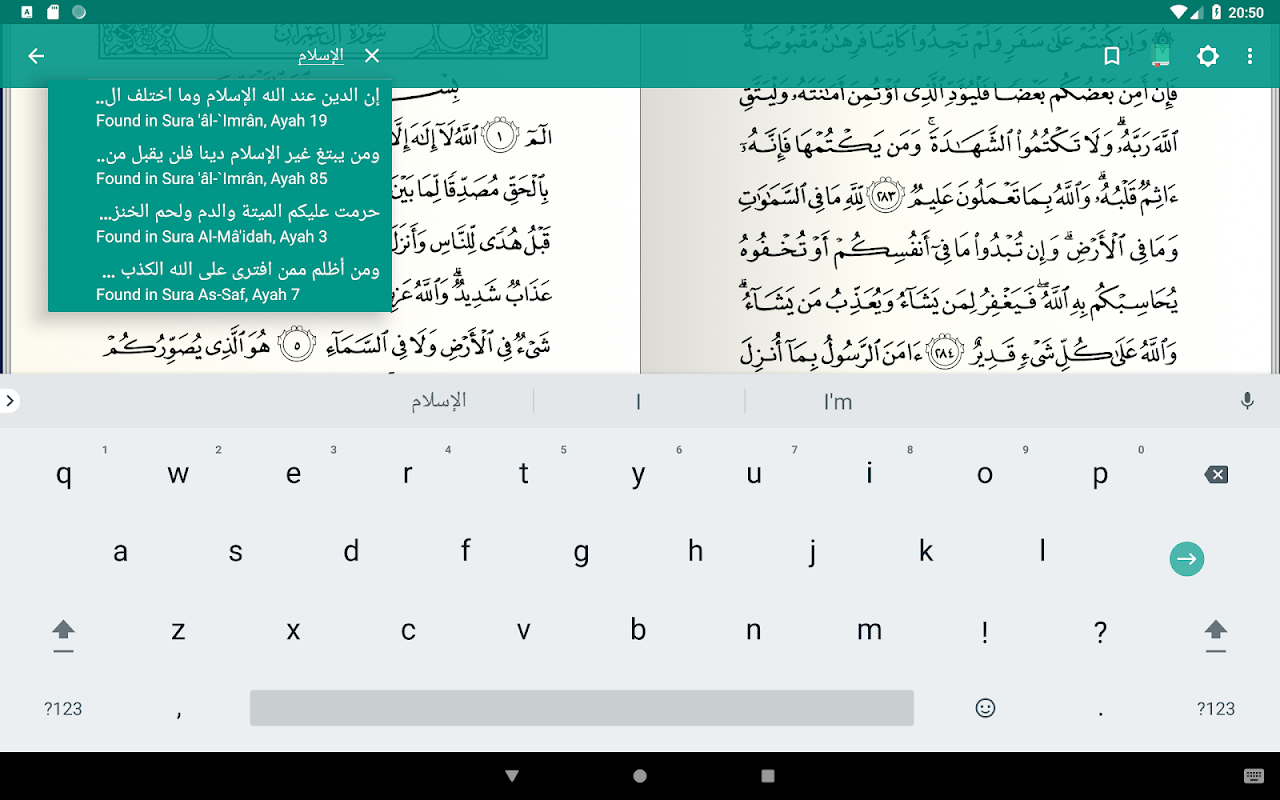 20:50
الإسلام
سورة آل عمران
إن الدين عند الله الإسلام وما اختلف ال..
Found in Sura 'âl-`Imrân, Ayah 19
ومن يبتغ غير الإسلام دينا فلن يقبل من..
Found in Sura 'âl-`Imrân, Ayah 85
حرمت عليكم الميتة والدم ولحم الخنز...
Found in Sura Al-Mâ'idah, Ayah 3
ومن أظلم ممن افترى على الله الكذب ...
Found in Sura As-Saf, Ayah 7
وَإِن كُنتُمْ عَلَىٰ سَفَرٍ وَلَمْ تَجِدُوا۟ كَاتِبًا فَرِهَٰنٌ مَّقْبُوضَةٌ
فَإِنْ أَمِنَ بَعْضُكُم بَعْضًا فَلْيُؤَدِّ ٱلَّذِى ٱؤْتُمِنَ أَمَٰنَتَهُۥ وَلْيَتَّقِ
ٱللَّهَ رَبَّهُۥ ۗ وَلَا تَكْتُمُوا۟ ٱلشَّهَٰدَةَ ۚ وَمَن يَكْتُمْهَا فَإِنَّهُۥٓ
ءَاثِمٌ قَلْبُهُۥ ۗ وَٱللَّهُ بِمَا تَعْمَلُونَ عَلِيمٌ ٢٨٣ لِّلَّهِ مَا فِى ٱلسَّمَٰوَٰتِ
وَمَا فِى ٱلْأَرْضِ ۗ وَإِن تُبْدُوا۟ مَا فِىٓ أَنفُسِكُمْ أَوْ تُخْفُوهُ
يُحَاسِبْكُم بِهِ ٱللَّهُ ۖ فَيَغْفِرُ لِمَن يَشَآءُ وَيُعَذِّبُ مَن يَشَآءُ ۗ
وَٱللَّهُ عَلَىٰ كُلِّ شَىْءٍ قَدِيرٌ ٢٨٤ ءَامَنَ ٱلرَّسُولُ بِمَآ أُنزِلَ
الٓمٓ ١ ٱللَّهُ لَآ إِلَٰهَ إِلَّا
بِٱلْحَقِّ مُصَدِّقًا لِّمَا بَيْنَ
قَبْلُ هُدًى لِّلنَّاسِ وَأَنزَلَ
عَذَابٌ شَدِيدٌ ۗ وَٱللَّهُ عَزِيزٌ
شَىْءٌ فِى ٱلْأَرْضِ وَلَا فِى ٱلسَّمَآءِ ٥ هُوَ ٱلَّذِى يُصَوِّرُكُمْ
الإسلام I I'm
1 2 3 4 5 6 7 8 9 0
q w e r t y u i o p
a s d f g h j k l
z x c v b n m ! ?
?123 , . ?123